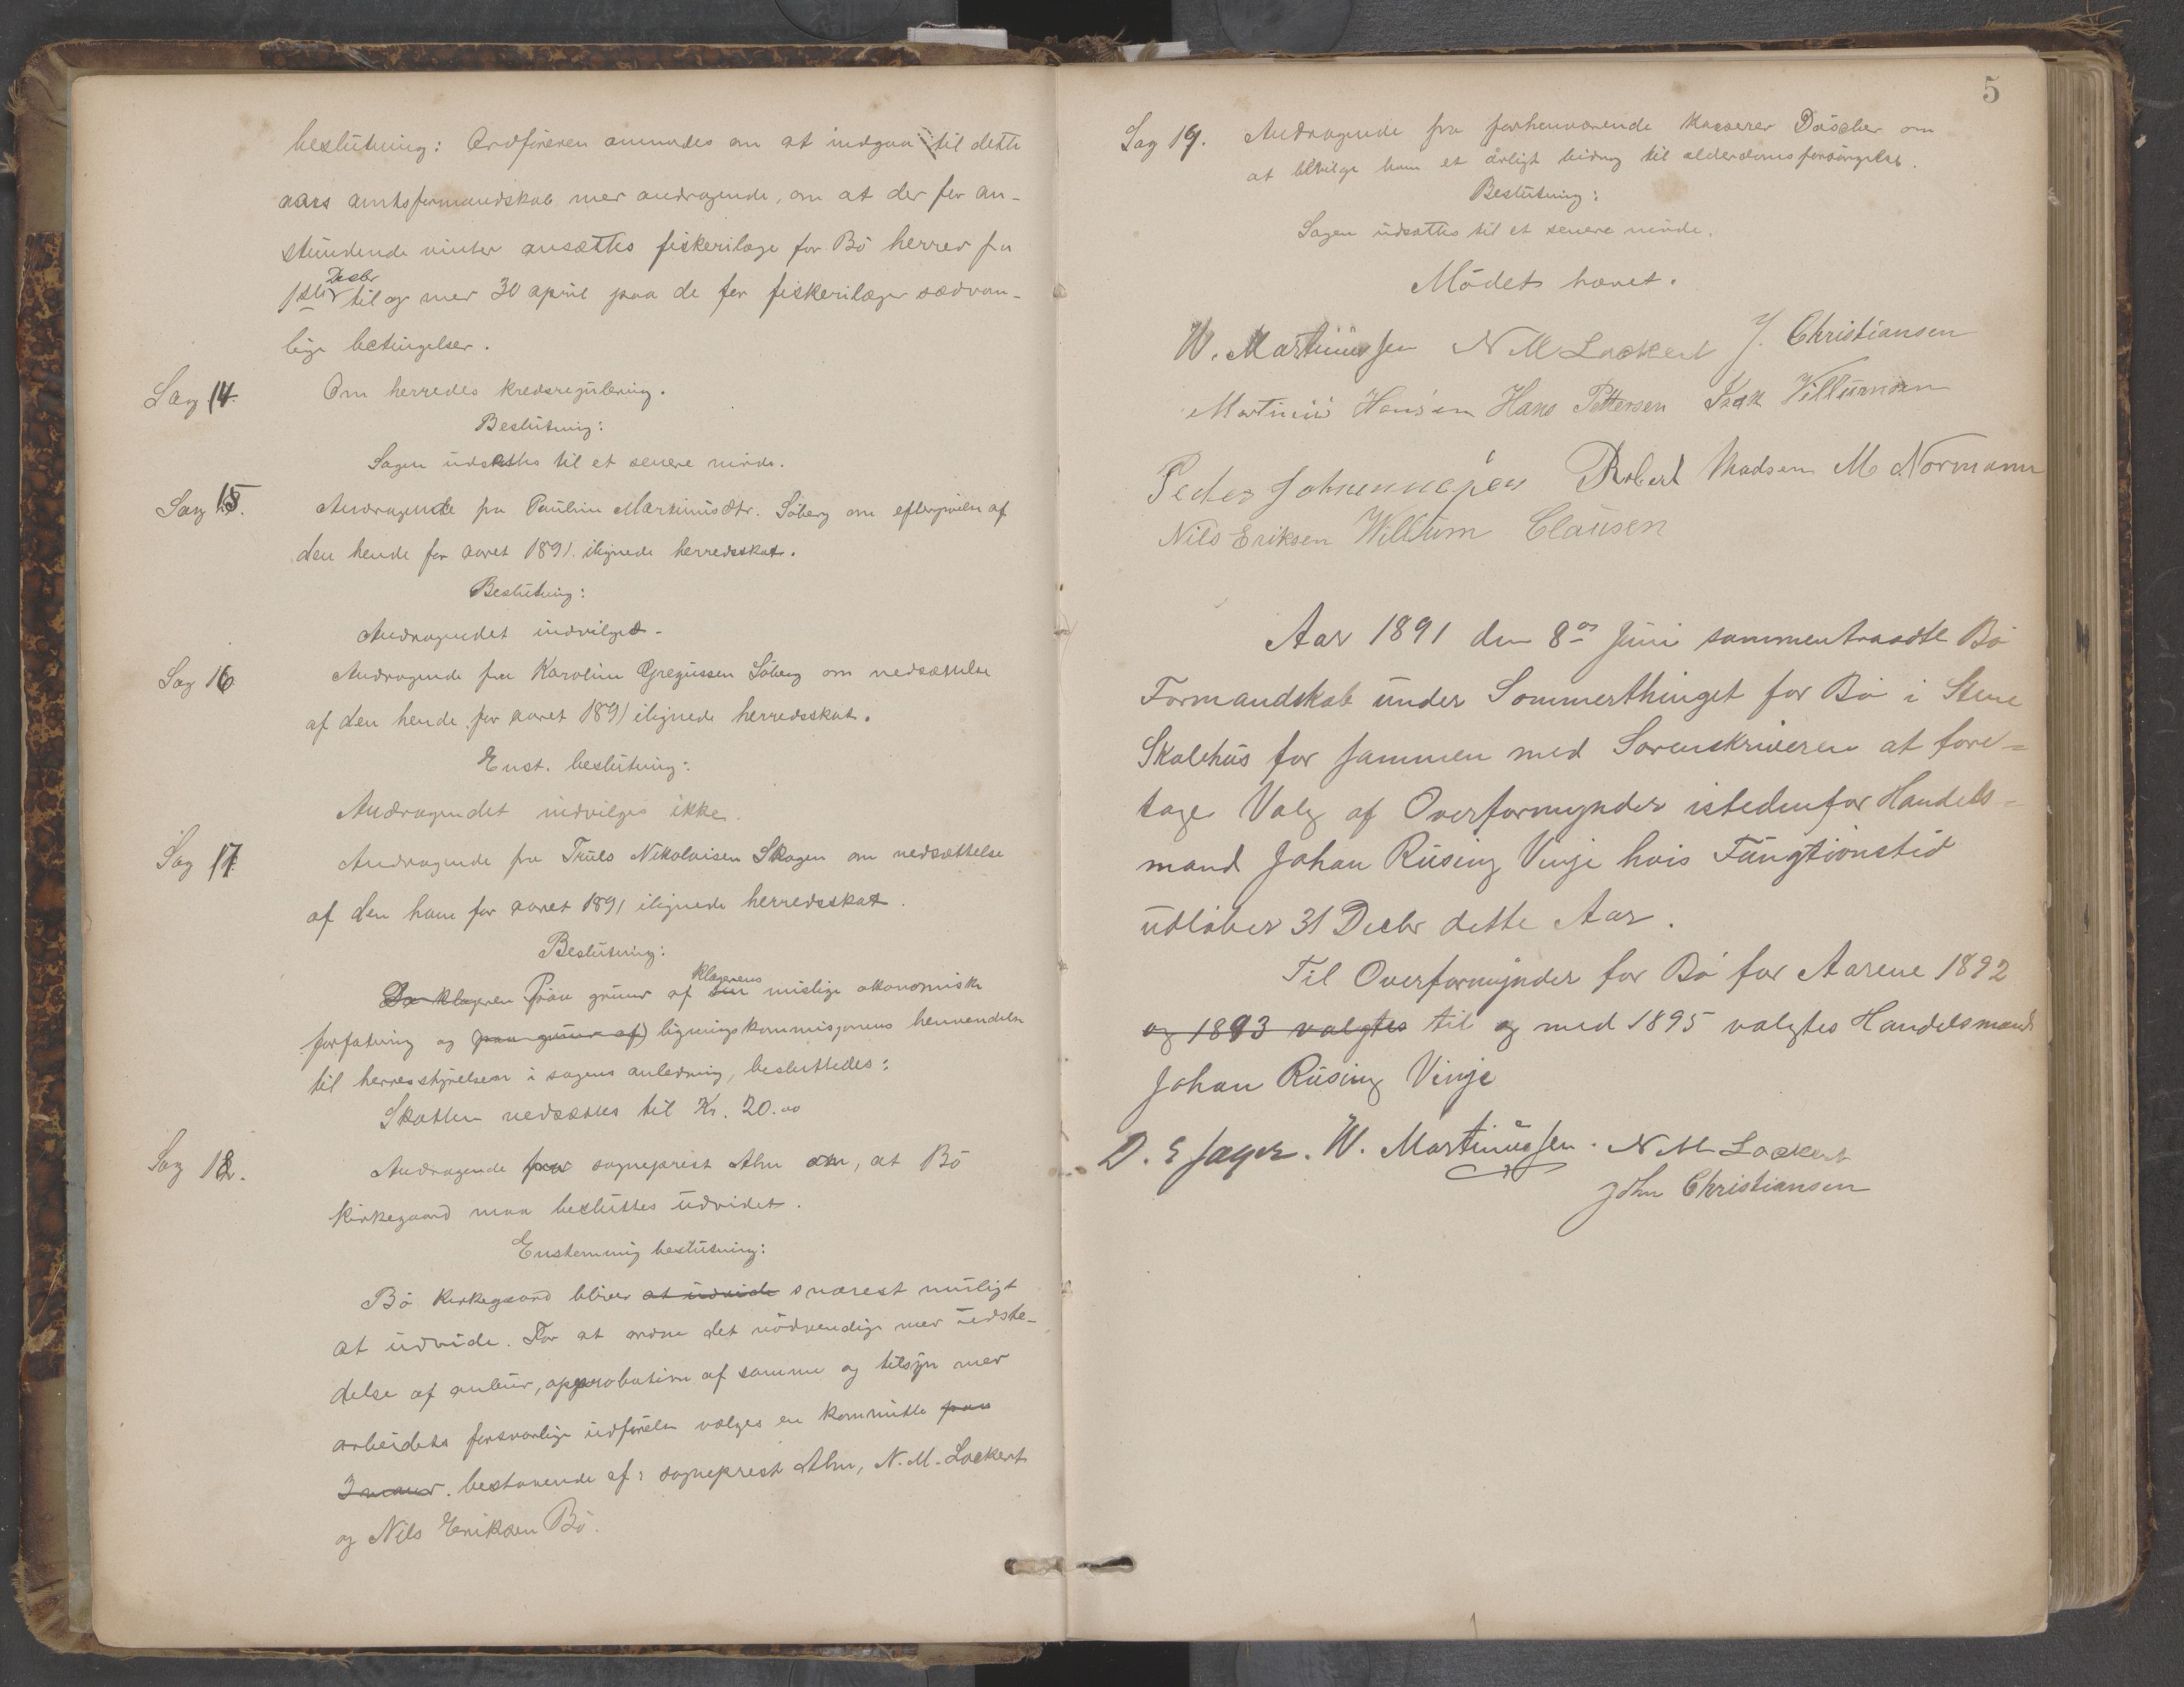 beslutning: Ordføreren anmodes om at indgaa til dette
aars amtsformandskab med andragende, om at der for an-
stundende vinter ansættes fiskerilæge for Bö herred fra
1ste Decbr til og med 30 april paa de for fiskerilæger sædvan-
lige betingelser.
Sag 14. Om herredes kredsregulering.
Beslutning:
Sagen udsættes til et senere möde.
Sag 15. Andragende fra Pauline Martinusdtr. Söberg om eftergivelse af
den hende for aaret 1891. ilignede herredsskat.
Beslutning:
Andragendet indvilges.
Sag 16 Andragende fra Karoline Gregussen Söberg om nedsættelse
af den hende for aaret 1891 ilignede herredsskat.
Enst. beslutning:
Andragendet indvilges ikke.
Sag 17. Andragende fra Truls Nikolaisen Skagen om nedsættelse
af den ham for aaret 1891 ilignede herredsskat.
Beslutning:
Da klageren Paa grund af sin klagerens mislige økonomiske
forfatning og paa grund af) ligningskommisjonens henvendelse
til herredsstyrelsen i sagens anledning, besluttedes:
Skatten nedsættes til Kr. 20.00
Sag 18. Andragende fra sogneprest Alm om, at Bö
kirkegaard maa besluttes udvidet.
Enstemmig beslutning:
Bö kirkegaard bliver at udvide snarest muligt
at udvide. For at ordne det nödvendige med udste-
delse af anbud, approbation af samme og tilsyn med
arbeidets forsvarlige udförelse vælges en kommitte paa
3 mand. bestaaende af: sogneprest Alm, N. M. Lockert
og Nils Eriksen Bö.
5
Sag 19. Andragende fra forhenværende kasserer Döscher om
at bevilge ham et årligt bidrag til alderdomsforsörgelse.
Beslutning:
Sagen udsættes til et senere möde.
Mödet hævet.
W. Martinussen N M Lockert J. Christiansen
Martinus Hansen Hans Pettersen Isak Villumsen
Peder Johannesen Robert Madsen M. Normann
Nils Eriksen Willum Clausen
Aar 1891 den 8de Juni sammentraadte Bö
Formandskab under Sommerthinget for Bö i Steine
Skolehus for sammen med Sorenskriveren at fore=
tage Valg af Overformynder istedenfor Handels=
mand Johan Rüsing Vinje hvis Fungtionstid
udlöber 31 Decbr dette Aar.
Til Overformynder for Bö for Aarene 1892
og 1893 valgtes til og med 1895 valgtes Handelsmand
Johan Rüsing Vinje
D. E Jager. W. Martinussen. N M Lockert
John Christiansen